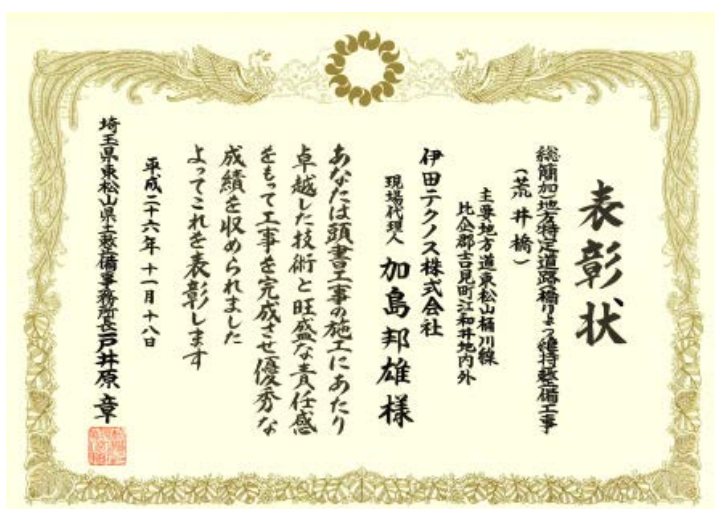 表彰状
総簡加)地方特定道路橋りょう維持整備工事
(荒井橋)
主要地方道東松山桶川線
比企郡吉見町江和井地内外
伊田テクノス株式会社
現場代理人 加島邦雄様
あなたは頭書工事の施工にあたり
卓越した技術と旺盛な責任感
をもって工事を完成させ優秀な
成績を収められました
よってこれを表彰します
平成二十六年十一月十八日
埼玉県東松山県土整備事務所長 戸井原章